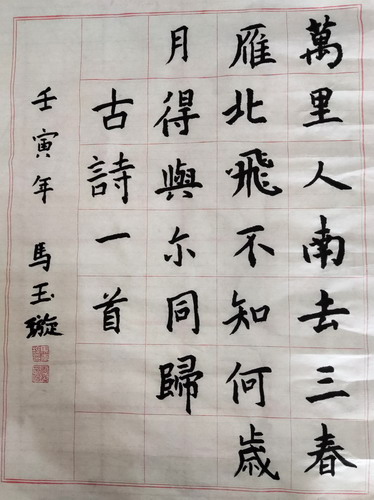 萬里人南去三春
雁北飛不知何歲
月得與尒同歸
古詩一首
壬寅年 馬玉璇